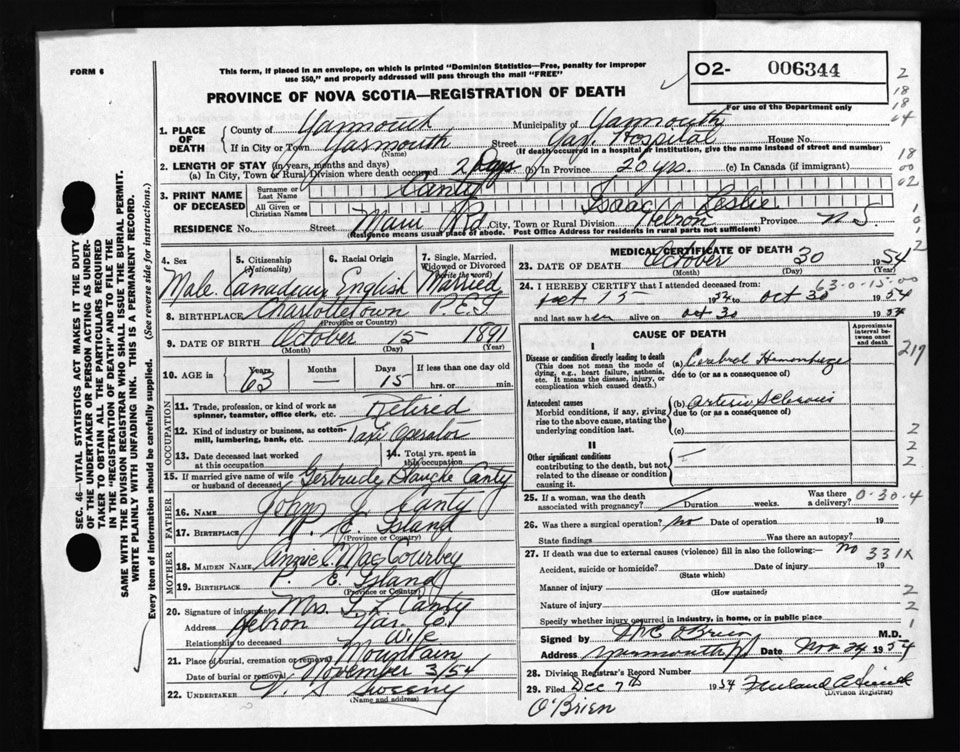 FORM 6
This form, if placed in an envelope, on which is printed "Dominion Statistics—Free, penalty for improper
use $50," and properly addressed will pass through the mail "FREE"
O2- 006344
PROVINCE OF NOVA SCOTIA—REGISTRATION OF DEATH
For use of the Department only
2
18
18
04
18
00
02
1
0
1
2
1. PLACE OF DEATH
County of Yarmouth Municipality of Yarmouth
If in City or Town Yarmouth Street Yar. Hospital House No.
(Name) (If death occurred in a hospital or institution, give the name instead of street and number)
2. LENGTH OF STAY (in years, months and days)
(a) In City, Town or Rural Division where death occurred 2 Days (b) In Province 20 yrs. (c) In Canada (if immigrant)
3. PRINT NAME OF DECEASED
Surname or Last Name Canty
All Given or Christian Names Isaac Leslie
RESIDENCE No. Street Main Rd. City, Town or Rural Division Hebron Province N.S.
(Residence means usual place of abode. Post Office Address for residents in rural parts not sufficient)
SEC. 46—VITAL STATISTICS ACT MAKES IT THE DUTY
OF THE UNDERTAKER OR PERSON ACTING AS UNDER-
TAKER TO OBTAIN ALL THE PARTICULARS REQUIRED
IN THE "REGISTRATION OF DEATH" AND TO FILE THE
SAME WITH THE DIVISION REGISTRAR WHO SHALL ISSUE THE BURIAL PERMIT.
WRITE PLAINLY WITH UNFADING INK. THIS IS A PERMANENT RECORD.
Every item of information should be carefully supplied. (See reverse side for instructions.)
4. Sex 5. Citizenship (Nationality) 6. Racial Origin 7. Single, Married, Widowed or Divorced (write the word)
Male Canadian English Married
8. BIRTHPLACE Charlottetown P.E.I.
(Province or Country)
9. DATE OF BIRTH October 15 1891
(Month) (Day) (Year)
10. AGE in Years Months Days If less than one day
63 — 15 hrs. or min.
OCCUPATION
11. Trade, profession, or kind of work as
spinner, teamster, office clerk, etc. Retired
12. Kind of industry or business, as cotton-
mill, lumbering, bank, etc. Taxi Operator
13. Date deceased last worked
at this occupation
14. Total yrs. spent in
this occupation
15. If married give name of wife
or husband of deceased Gertrude Blanche Canty
FATHER
16. Name John J. Canty
17. Birthplace P. E. Island
(Province or Country)
MOTHER
18. MAIDEN NAME Annie
19. BIRTHPLACE P. E. Island
(Province or Country)
20. Signature of informant Mrs. I. L. Canty
Address Hebron Yar. Co.
Relationship to deceased Wife
21. Place of burial, cremation or removal Mountain
Date of burial or removal November 3/54
22. UNDERTAKER V. S. Sweeny
(Name and address)
MEDICAL CERTIFICATE OF DEATH
23. DATE OF DEATH October 30 1954
(Month) (Day) (Year)
24. I HEREBY CERTIFY that I attended deceased from: 63-0-15-00
15 19 to Oct 30 1954
and last saw h alive on Oct 30 1954
CAUSE OF DEATH
Approximate interval between onset and death
I
Disease or condition directly leading to death
(This does not mean the mode of
dying, e.g., heart failure, asthenia,
etc. It means the disease, injury, or
complication which caused death.)
(a) Cerebral Hemorrhage
due to (or as a consequence of)
Antecedent causes
Morbid conditions, if any, giving
rise to the above cause, stating the
underlying condition last.
(b) Arterio Sclerosis
due to (or as a consequence of)
(c)
II
Other significant conditions
contributing to the death, but not
related to the disease or condition
causing it.
219
2
2
2
25. If a woman, was the death
associated with pregnancy? Duration weeks. Was there
a delivery?
0-30-4
26. Was there a surgical operation? no Date of operation 19
State findings Was there an autopsy?
27. If death was due to external causes (violence) fill in also the following:— no 331X
Accident, suicide or homicide? Date of injury 19
(State which)
Manner of injury
(How sustained)
2
Nature of injury
2
Specify whether injury occurred in industry, in home, or in public place
1
Signed by O'Brien M.D.
Address Yarmouth Date Nov 24 1954
28. Division Registrar's Record Number
29. Filed Dec 7th 1954
(Division Registrar)
O'Brien